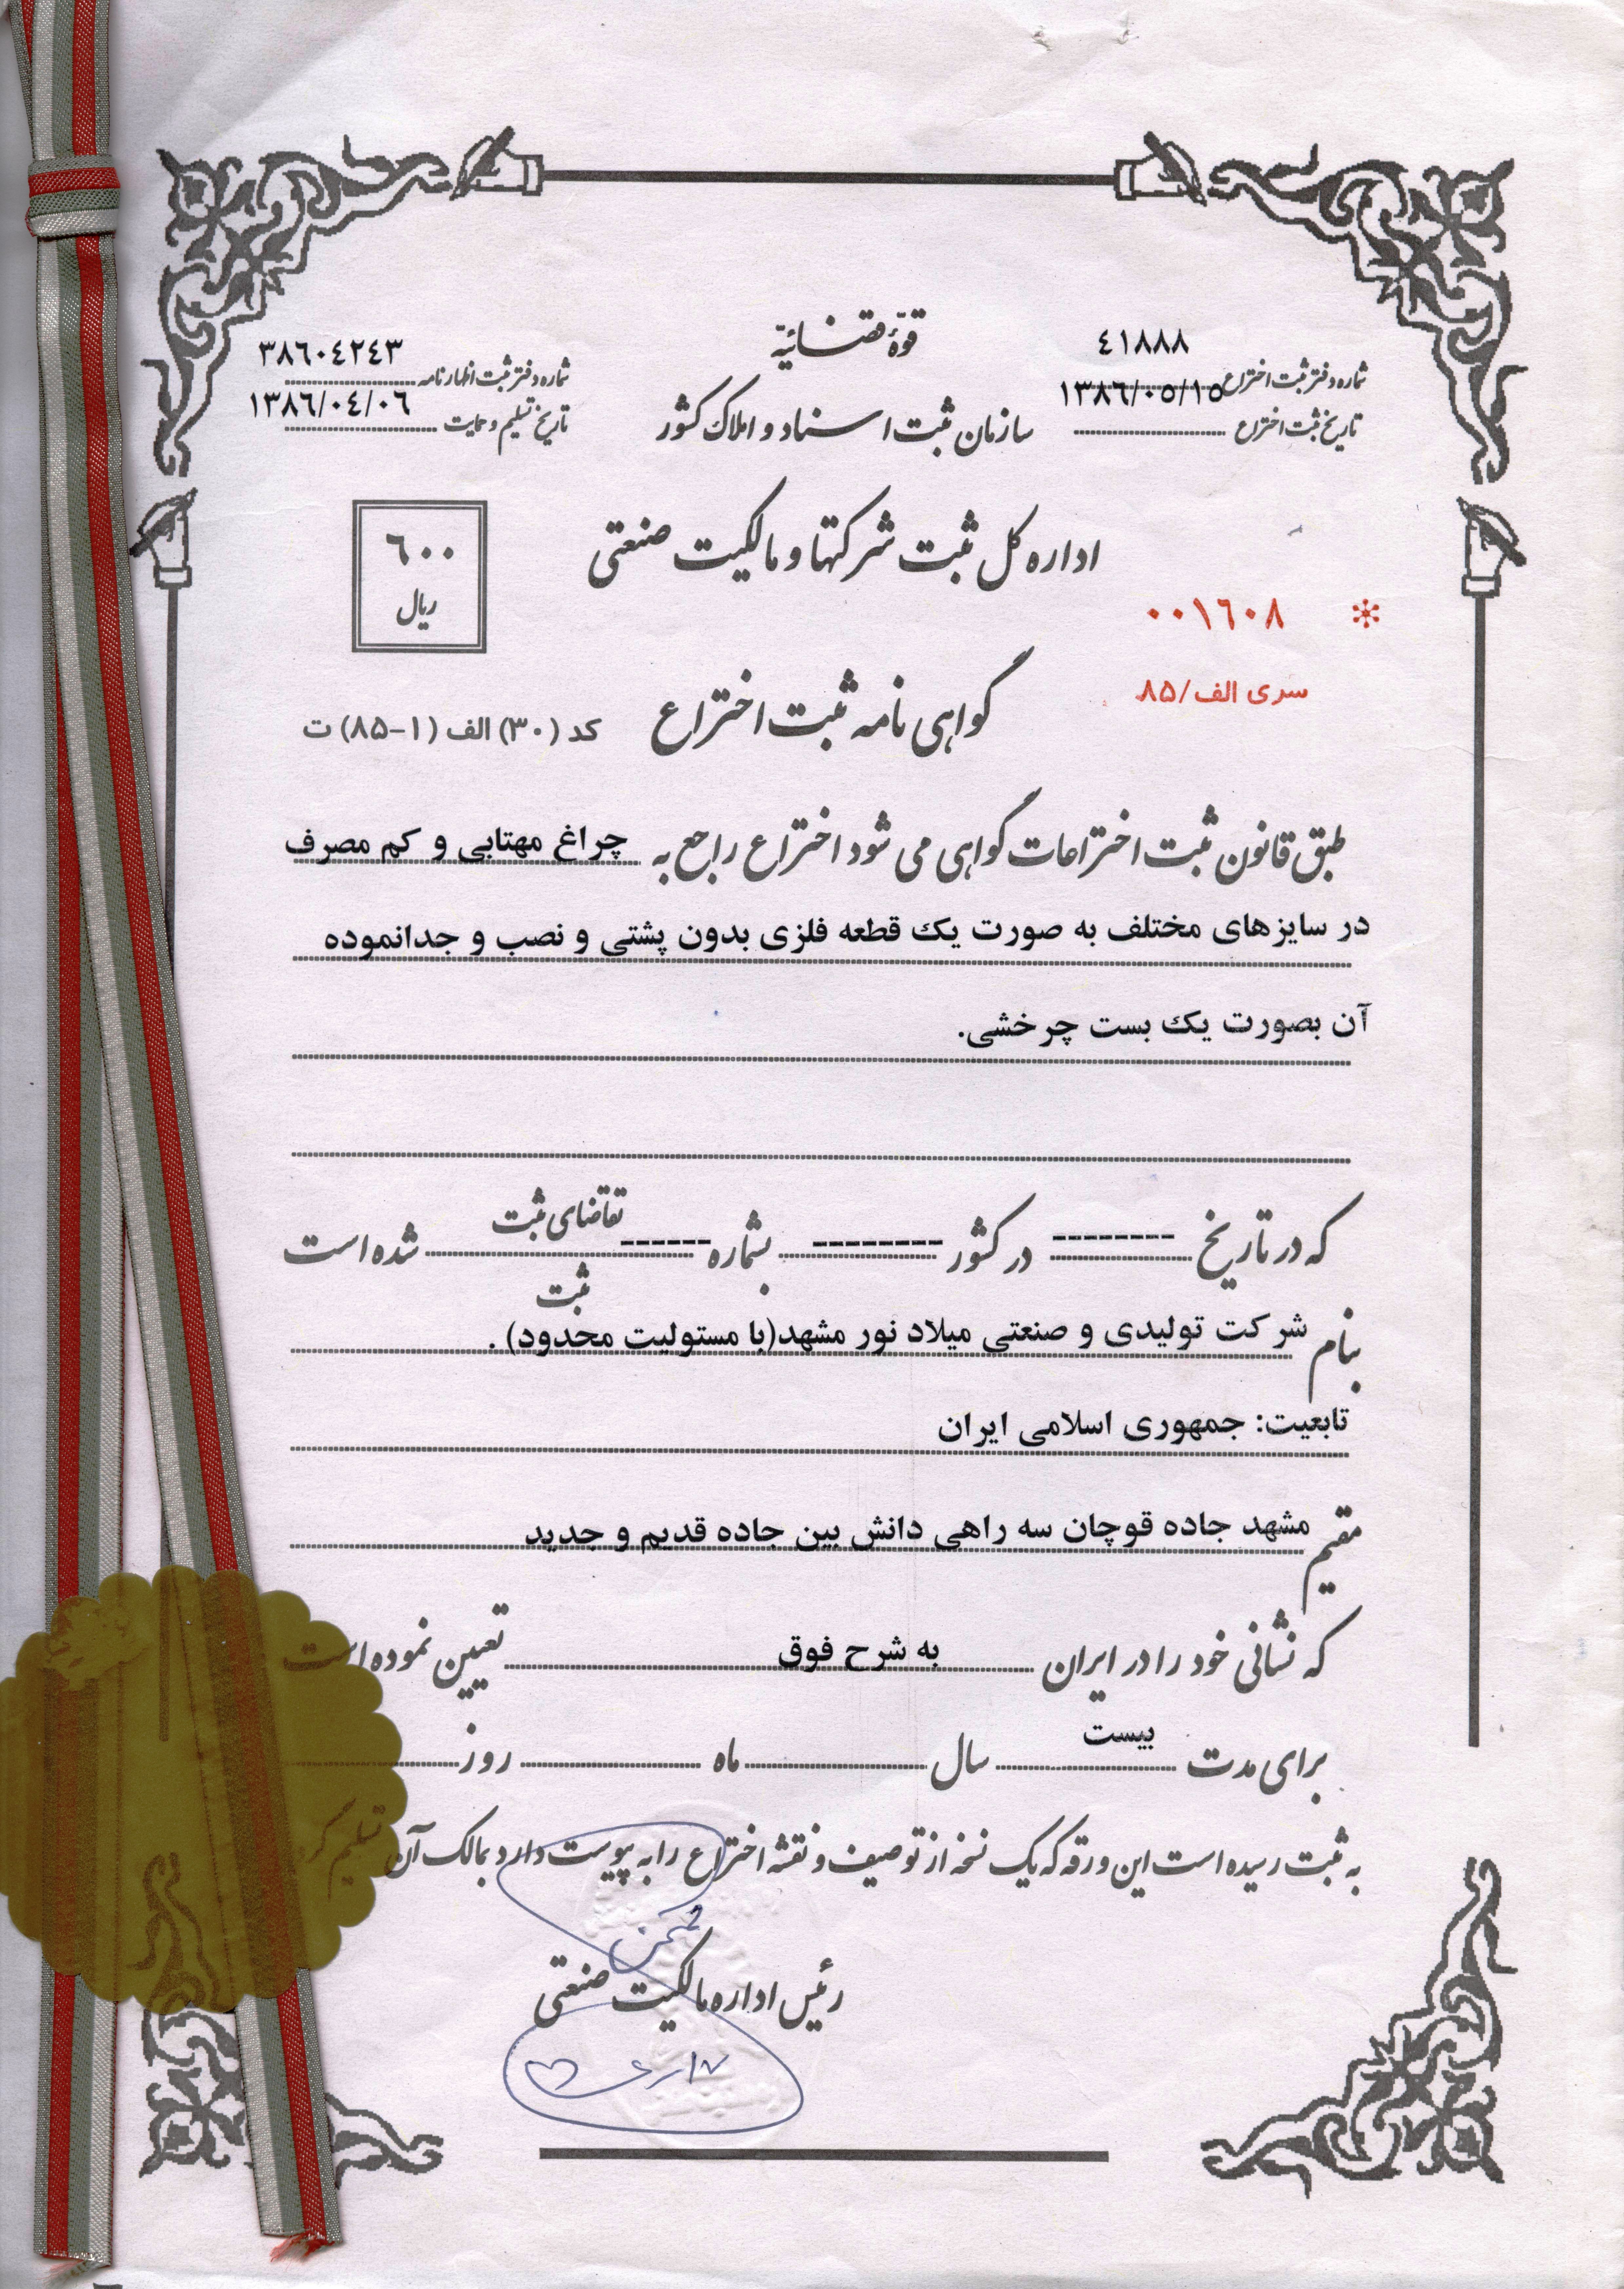 قوّۀ قضائیّه
سازمان ثبت اسناد و املاک کشور
اداره کل ثبت شرکتها و مالکیت صنعتی
٤١٨٨٨
شماره دفتر ثبت اختراع
١٣٨٦/٠٥/١٥
تاریخ ثبت اختراع
٣٨٦٠٤٢٤٣
شماره دفتر ثبت اظهارنامه
١٣٨٦/٠٤/٠٦
تاریخ تسلیم و حمایت
٦٠٠
ریال
* ٠٠١٦٠٨
سری الف/۸۵
گواهی نامه ثبت اختراع
کد (۳۰) الف (۱-۸۵) ت
طبق قانون ثبت اختراعات گواهی می شود اختراع راجع به چراغ مهتابی و کم مصرف
در سایزهای مختلف به صورت یک قطعه فلزی بدون پشتی و نصب و جدانموده
آن بصورت یک بست چرخشی.
که در تاریخ -------- در کشور --------- بشماره ------ تقاضای ثبت شده است
ثبت
بنام شرکت تولیدی و صنعتی میلاد نور مشهد(با مسئولیت محدود) .
تابعیت: جمهوری اسلامی ایران
مقیم مشهد جاده قوچان سه راهی دانش بین جاده قدیم و جدید
که نشانی خود را در ایران به شرح فوق تعیین نموده است
برای مدت بیست سال ماه روز
به ثبت رسیده است این ورقه که یک نسخه از توصیف و نقشه اختراع را به پیوست دارد بمالک آن تسلیم گردید
رئیس اداره مالکیت صنعتی